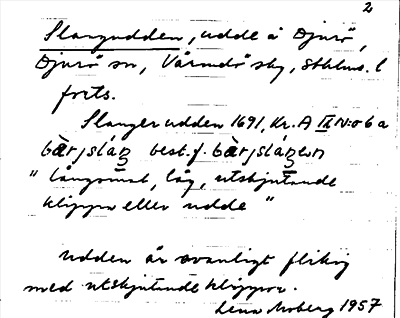 2
Slangudden, udde å Djurö,
Djurö sn, Värmdö sky, Sthlms. l
forts.
Slanger udden 1691, Kr. A IX N:o 6 a
best. f.
"långsmal, låg, utskjutande
klippa eller udde"
udden är ovanligt flikig
med utskjutande klippor.
Lena Moberg 1957